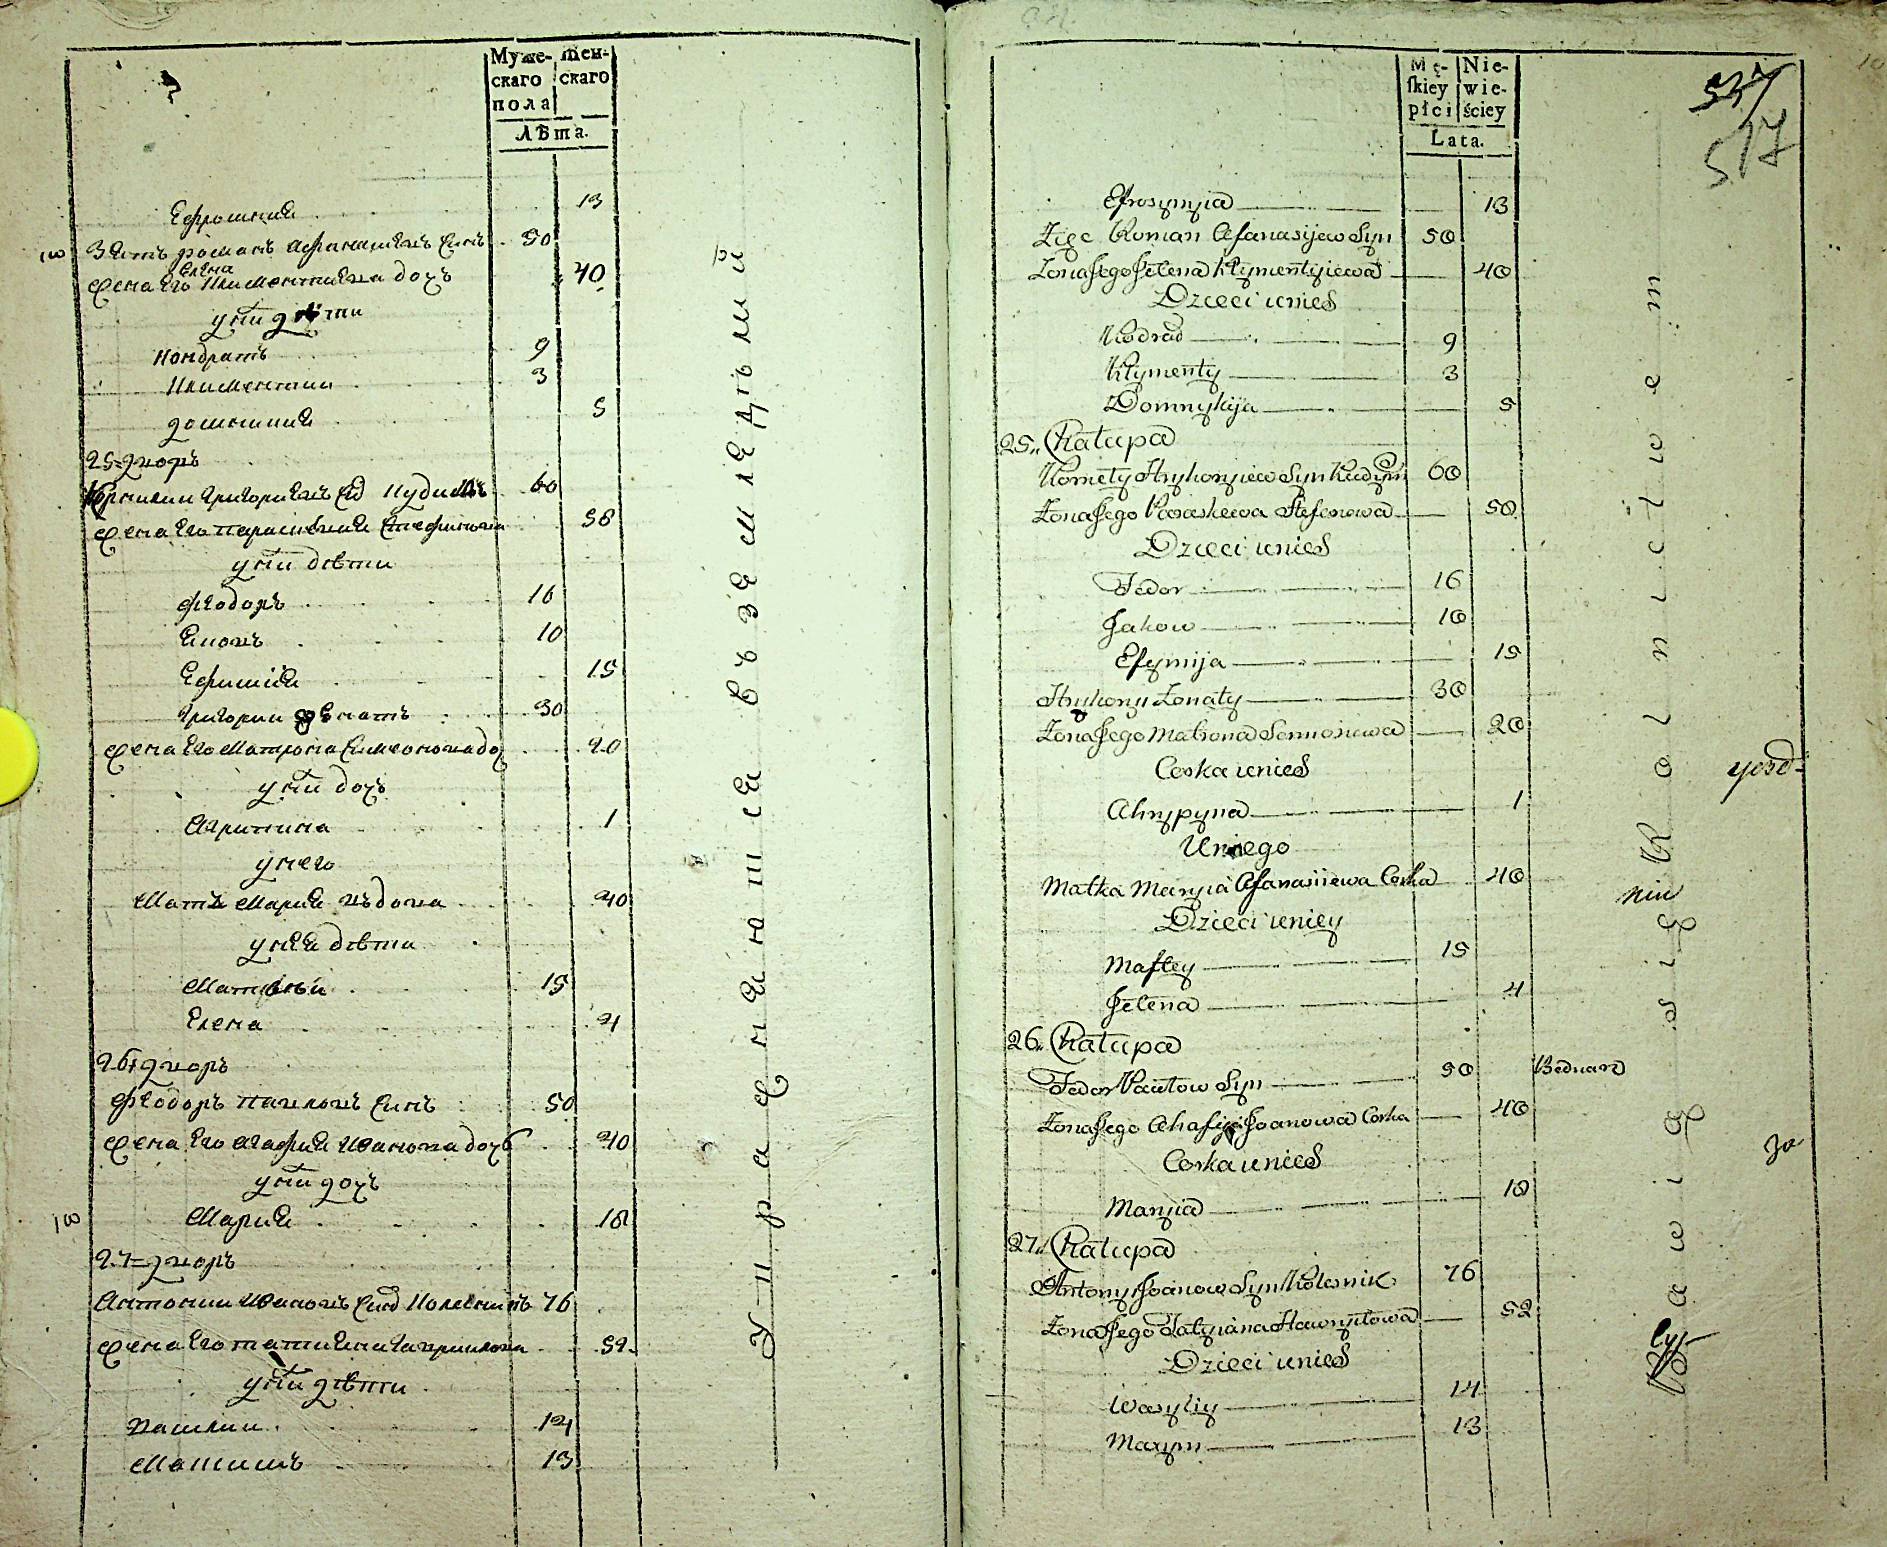 Муже-
скаго
пола
Жен-
скаго
Лѣта.
Ефросиния 13
Зять романъ афанасиевъ синъ 50
Елена
жена его климентиева дочъ 40
у них дѣти
кондратъ 9
климентии 3
домникия 5
25=дворъ
Корнилии григориевъ син кудимъ 60
жена его параскевия стефанова 58
у них дѣти
феодоръ 16
Яковъ 10
Ефимия 15
григории женатъ 30
жена его матрона симеонова до 20
у них дочъ
агрипина 1
у него
мать мария вдова 40
у нея дѣти
матвѣй 15
Елена 4
26=дворъ
феодоръ павловъ синъ 50
жена его агафия иванова дочъ 40
у них дочъ
мария 18
27=дворъ
антонии ивановъ син колесникъ 76
жена его татияна гаврилова 52
у них дѣти
василии 14
максимъ 13
Упражняются въ земледѣлмй
Mę-
ſkiey
płci
Nie-
wie-
ściey
Lata.
537
517
Efrosynyia 13
Zięc Roman Afanasijew Syn 50
Zona Jego Jelena Klymentyiewa 40
Dzieci unich
Kodrad 9
Klymenty 3
Domnykija 5
25. Chalupa
Kornely Hryhoryiew Syn Kudym 60
Zona Jego Paraskewa Stefanowa 58
Dzieci unich
Fedor 16
Jakow 10
Efymija 15
Hryhory Zonaty 30
Zona Jego Matrona Semionowa 20
Corka unich
Ahrypyna 1
Uniego
Matka Maryia Afanasiiewa Corka 40
Dzieci uniey
Maftey 15
Jelena 4
26. Chalupa
Fedor Pawlow Syn 50 Bednarz
Zona Jego Ahafyia Joanowa Corka 40
Corka unich
Maryia 18
27. Chalupa
Antony Joanow Syn Kolesnik 76
Zona Jego Tatyiana Hawryłowa 52
Dzieci unich
Wasyliy 14
Maxym 13
Bawią się Rolnictwem